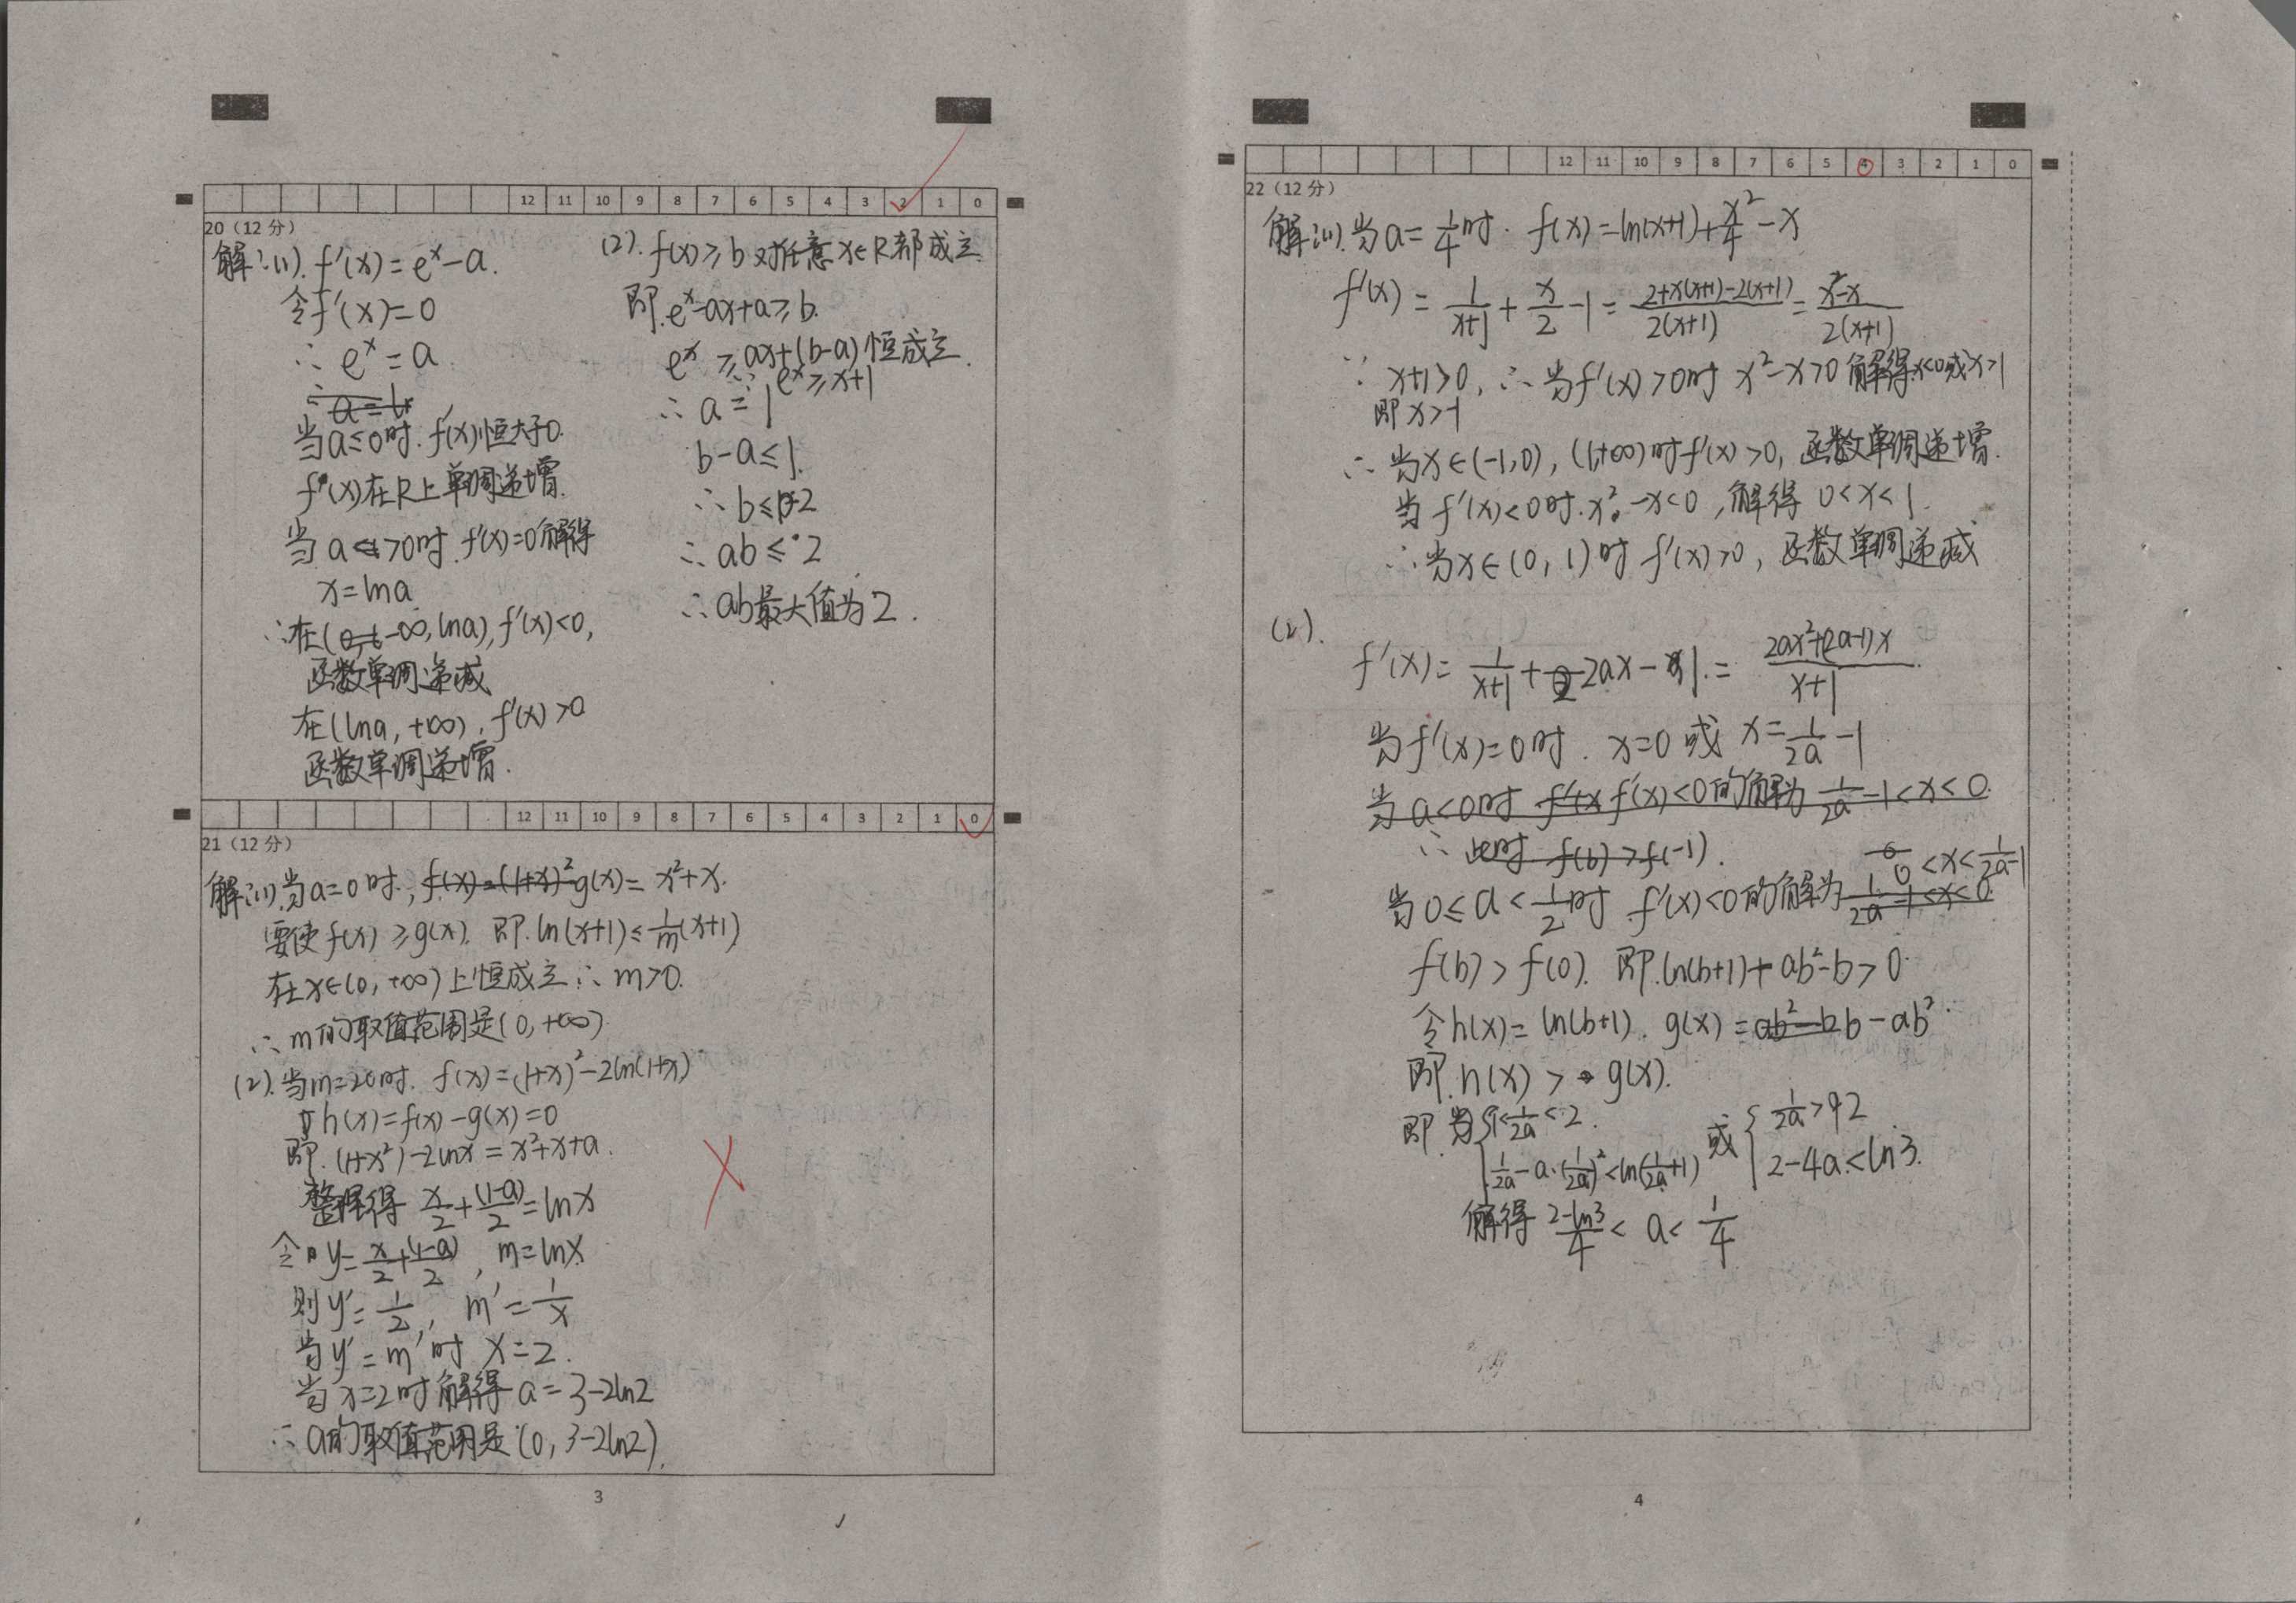 12 11 10 9 8 7 6 5 4 3 2 1 0
20（12分）
解:(1). f'(x)=eˣ-a.
令f'(x)=0
∴ eˣ=a
当a≤0时. f'(x)恒大于0.
f(x)在R上单调递增.
当a>0时. f'(x)=0解得
x=lna
∴在(-∞,lna), f'(x)<0,
函数单调递减
在(lna,+∞), f'(x)>0
函数单调递增.
(2). f(x)≥b对任意x∈R都成立
即.eˣ-ax+a≥b.
eˣ≥ax+(b-a)恒成立.
∵ eˣ≥x+1
∴ a=1
b-a≤1.
∴ b≤2
∴ ab≤2
∴ab最大值为2.
12 11 10 9 8 7 6 5 4 3 2 1 0
21（12分）
解:(1).当a=0时, g(x)=x²+x.
要使f(x)≥g(x). 即.ln(x+1)≤1/m(x+1)
在x∈(0,+∞)上恒成立∴m>0.
∴m的取值范围是(0,+∞)
(2).当m=2时. f(x)=(1+x)²-2ln(1+x)
h(x)=f(x)-g(x)=0
即.(1+x²)-2lnx=x²+x+a.
整理得 x/2+(1-a)/2=lnx
令y=x/2+(1-a)/2, m=lnx
则y'=1/2, m'=1/x
当y'=m'时 x=2.
当x=2时解得a=3-2ln2
∴a的取值范围是(0,3-2ln2).
3
12 11 10 9 8 7 6 5 4 3 2 1 0
22（12分）
解:(1).当a=1/4时. f(x)=ln(x+1)+x²/4-x
f'(x)=1/(x+1)+x/2-1=(2+x(x+1)-2(x+1))/(2(x+1))=(x²-x)/(2(x+1))
∵ x+1>0, ∴当f'(x)>0时 x²-x>0解得x<0或x>1
即x>-1
∴当x∈(-1,0), (1,+∞)时f'(x)>0, 函数单调递增.
当f'(x)<0时.x²-x<0,解得 0<x<1.
∴当x∈(0,1)时 f'(x)>0, 函数单调递减
(2).
f'(x)=1/(x+1)+2ax-1.=(2ax²+(2a-1)x)/(x+1)
当f'(x)=0时. x=0或 x=1/(2a)-1
当a<0时 f'(x)<0的解为1/(2a)-1<x<0.
∴此时 f(b)>f(-1).
当0≤a<1/2时 f'(x)<0的解为0<x<1/(2a)-1
f(b)>f(0). 即.ln(b+1)+ab²-b>0.
令h(x)=ln(b+1). g(x)=b-ab².
即.h(x)>g(x).
即当{1<1/(2a)<2. 或{1/(2a)>2
1/(2a)-a·(1/(2a))²<ln(1/(2a)+1) 2-4a<ln3.
解得 (2-ln3)/4<a<1/4
4